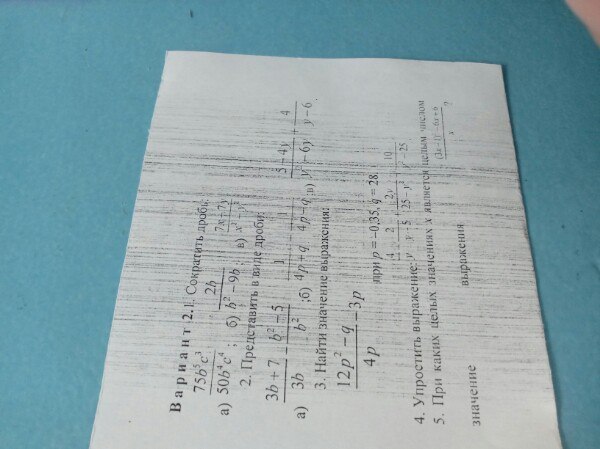 Вариант 2.
1. Сократить дробь:
а) 75b⁵c³/50b⁴c⁴ ; б) 2b/b² − 9b ; в) 7x+7y/x²−y²
2. Представить в виде дроби:
а) 3b + 7/3b − b² − 5/b² ; б) 1/4p+q − 1/4p−q ; в) 5 − 4y/y² − 6y + 4/y − 6
3. Найти значение выражения:
12p² − q/4p − 3p при p = −0,35, q = 28.
4. Упростить выражение:
5. При каких целых значениях x является целым числом
значение выражения